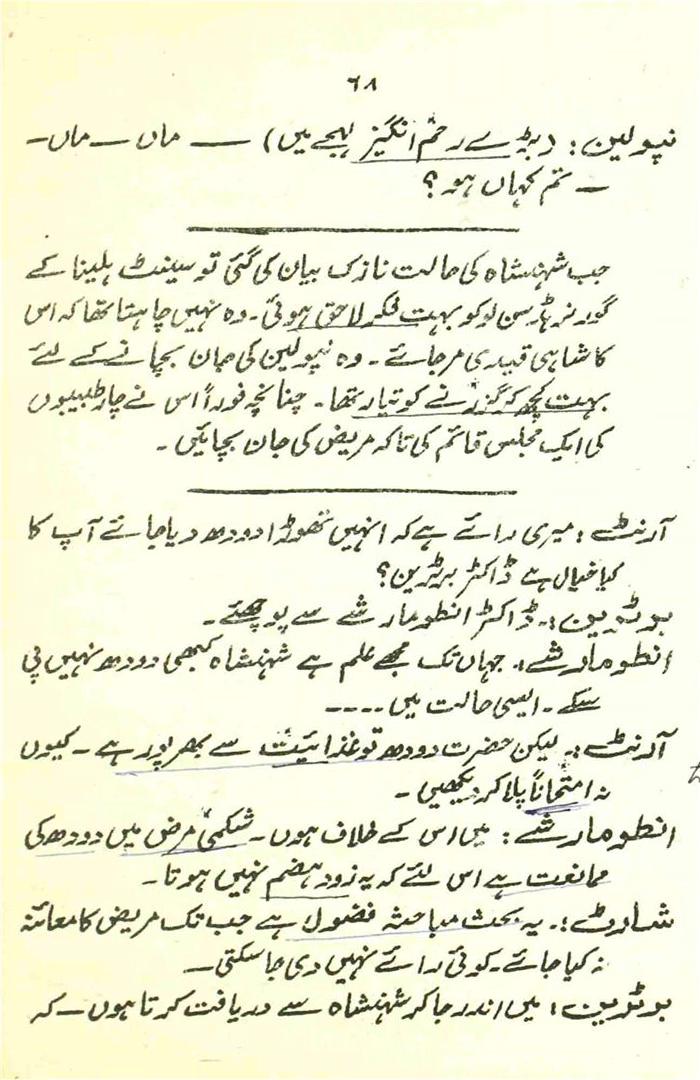 ٦٨
نپولین: (بڑے رحم انگیز لہجے میں) — ماں — ماں۔
— تم کہاں ہو؟
جب شہنشاہ کی حالت نازک بیان کی گئی تو سینٹ ہلینا کے
گورنر ہڈسن لو کو بہت فکر لاحق ہوئی۔ وہ نہیں چاہتا تھا کہ اس
کا شاہی قیدی مر جائے۔ وہ نپولین کی جان بچانے کے لئے
بہت کچھ کر گزرنے کو تیار تھا۔ چنانچہ فوراً اس نے چار طبیبوں
کی ایک مجلس قائم کی تاکہ مریض کی جان بچائیں۔
آرنٹ: میری رائے ہے کہ انہیں تھوڑا دودھ دیا جائے آپ کا
کیا خیال ہے ڈاکٹر برٹرین؟
برٹرین:۔ ڈاکٹر انطومارشے سے پوچھئے۔
انطومارشے:۔ جہاں تک مجھے علم ہے شہنشاہ کبھی دودھ نہیں پی
سکے۔ ایسی حالت میں ۔۔۔۔
آرنٹ:۔ لیکن حضرت دودھ تو غذائیت سے بھرپور ہے۔ کیوں
نہ امتحاناً پلا کر دیکھیں۔
انطومارشے: میں اس کے خلاف ہوں۔ شکمی مرض میں دودھ کی
ممانعت ہے اس لئے کہ یہ زود ہضم نہیں ہوتا۔
شارٹ:۔ یہ بحث مباحثہ فضول ہے جب تک مریض کا معائنہ
نہ کیا جائے۔ کوئی رائے نہیں دی جا سکتی۔
برٹرین: میں اندر جا کر شہنشاہ سے دریافت کرتا ہوں۔ کہ